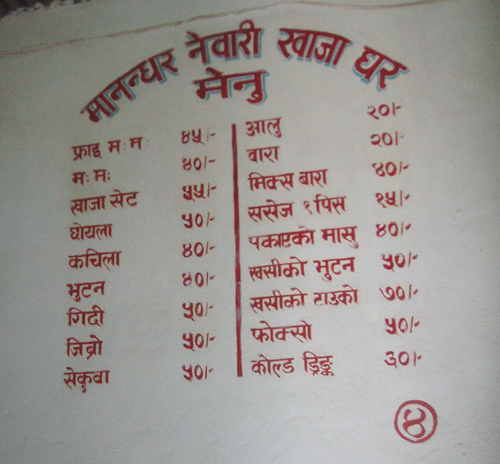 मानन्धर नेवारी खाजा घर
मेनु
फ्राइ मः म ४५/-
मः मः ४०/-
खाजा सेट ५५/-
छोयला ५०/-
कचिला ४०/-
भुटन ४०/-
गिदी ५०/-
जिब्रो ५०/-
सेकुवा ५०/-
आलु २०/-
वारा २०/-
मिक्स बारा ४०/-
ससेज १ पिस १५/-
पकाएको मासु ४०/-
खसीको भुटन ५०/-
खसीको टाउको ७०/-
फोक्सो ५०/-
कोल्ड ड्रिङ्क ३०/-
४